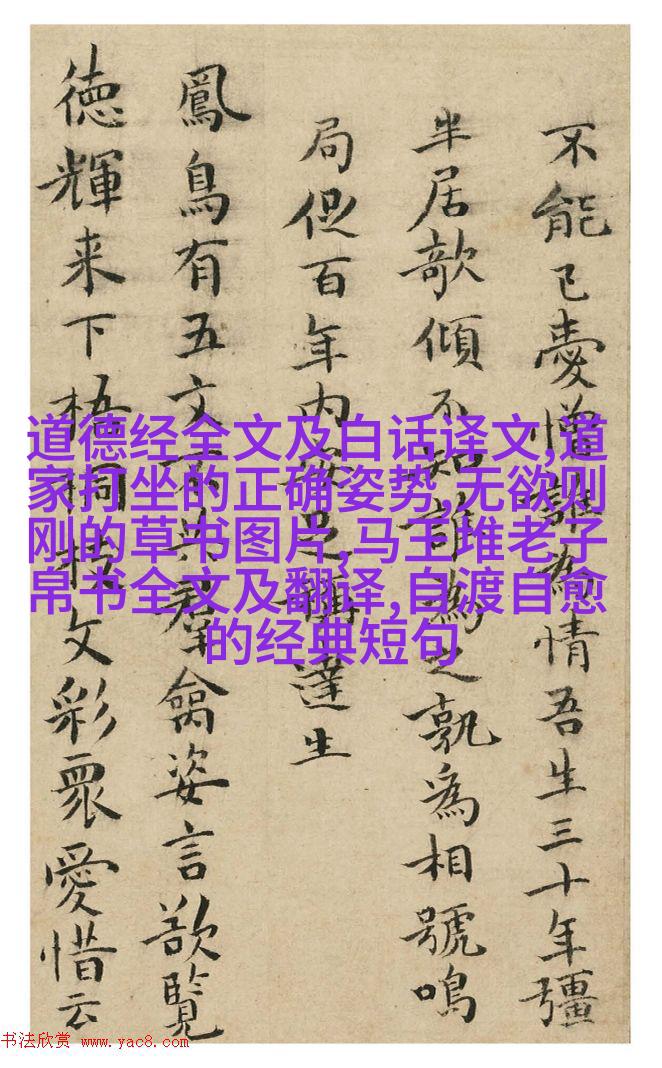 不能已憂憎誰為情吾生三十年彊
半居欹傾不知誰為之孰為相號鳴
局促百年内足稱達生
鳳鳥有五文不共羣禽姿言欲覧
徳輝来下梧桐枝文彩衆愛惜云
道德经全文及白话译文,道
家打坐的正确姿势,无欲则
刚的草书图片,马王堆老子
帛书全文及翻译,自渡自愈
的经典短句
书法欣赏 www.yac8.com